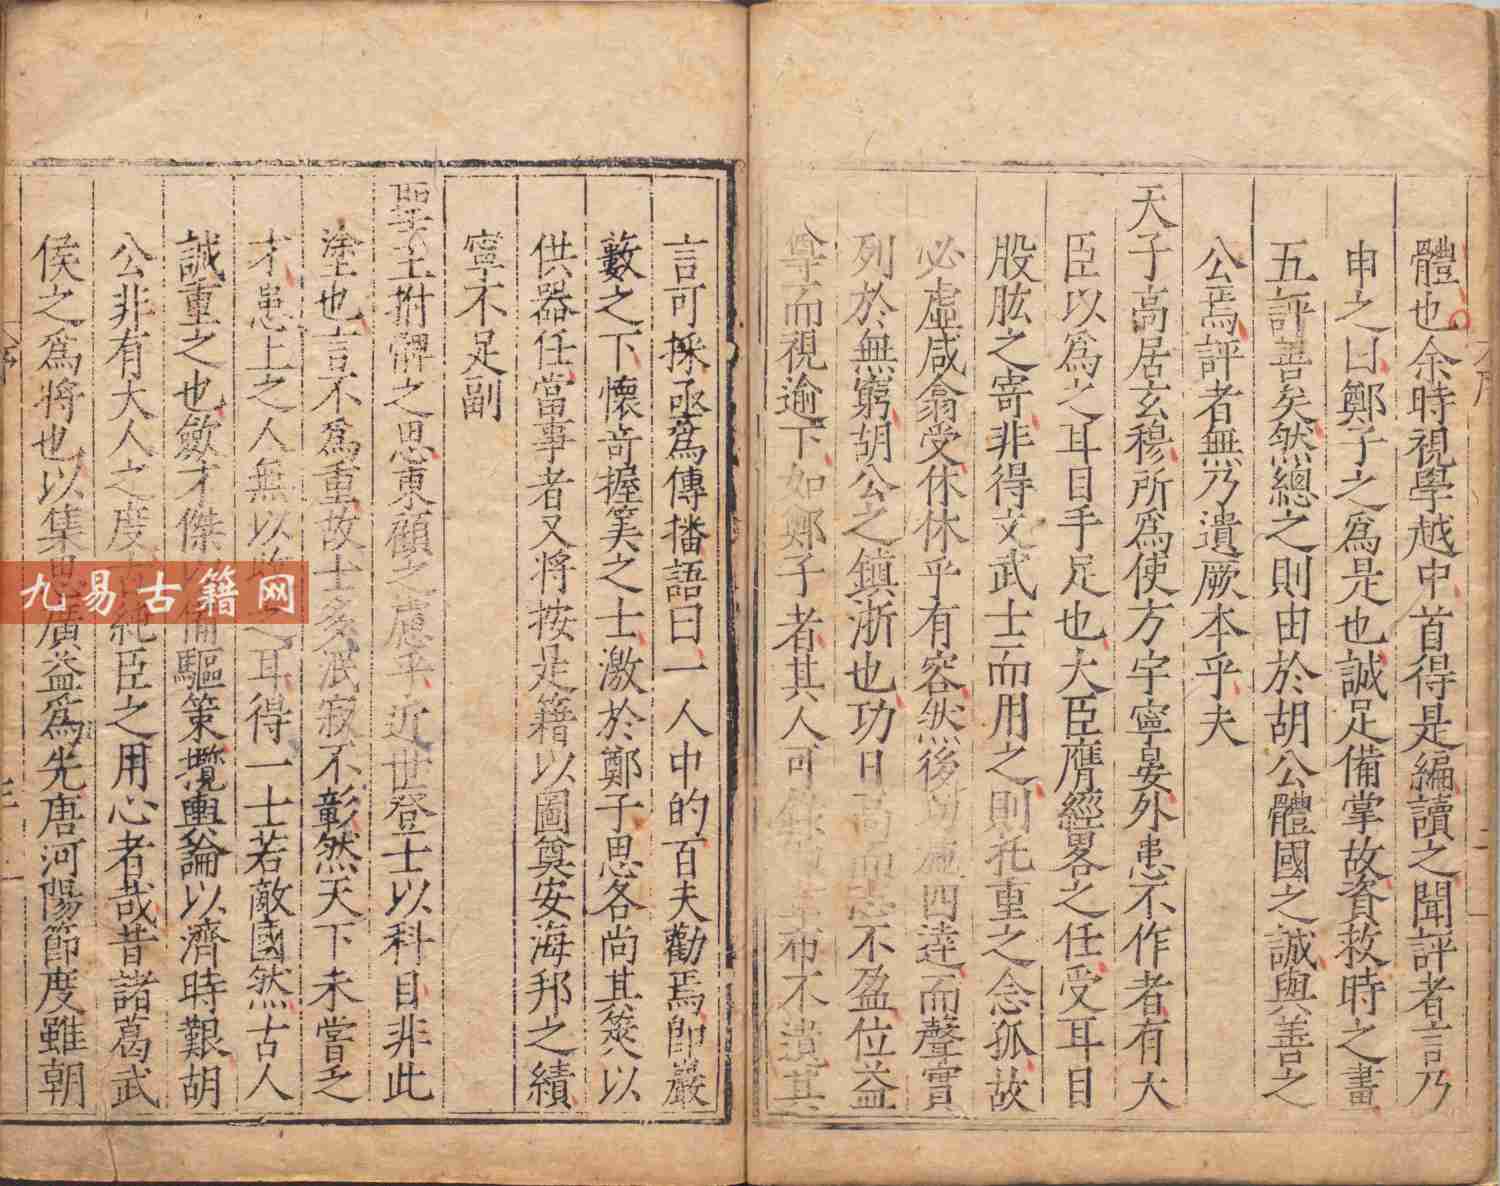 體也余時視學越中首得是編讀之聞評者言乃
申之曰鄭子之爲是也誠足備掌故資救時之畫
五評善矣然總之則由於胡公體國之誠與善之
公焉評者無乃遺厥本乎夫
天子高居玄穆所爲使方宇寧晏外患不作者有大
臣以爲之耳目手足也大臣膺經畧之任受耳目
股肱之寄非得文武士而用之則孤托重之念孤故
必虛咸翕受休休乎有容然後功施四逹而聲實
列於無窮胡公之鎮浙也功日高而志不盈位益
尊而視逾下如鄭子者其人可布不遺其
言可採亟爲傳播語曰一人中的百夫勸焉即巖
藪之下懷竒握筭之士激於鄭子思各尚其筴以
供器任當事者又將按是籍以圖奠安海邦之績
寧不足副
聖主拊髀之思東顧之慮乎近世登士以科目非此
塗也言不爲重故士多泯寂不彰然天下未嘗乏
才患上之人無以致之耳得一士若敵國然古人
誠重之也歛才傑以備驅策攬輿論以濟時艱胡
公非有大人之度純臣之用心者哉昔諸葛武
侯之爲將也以集思廣益爲先唐河陽節度雖朝
九易古籍网